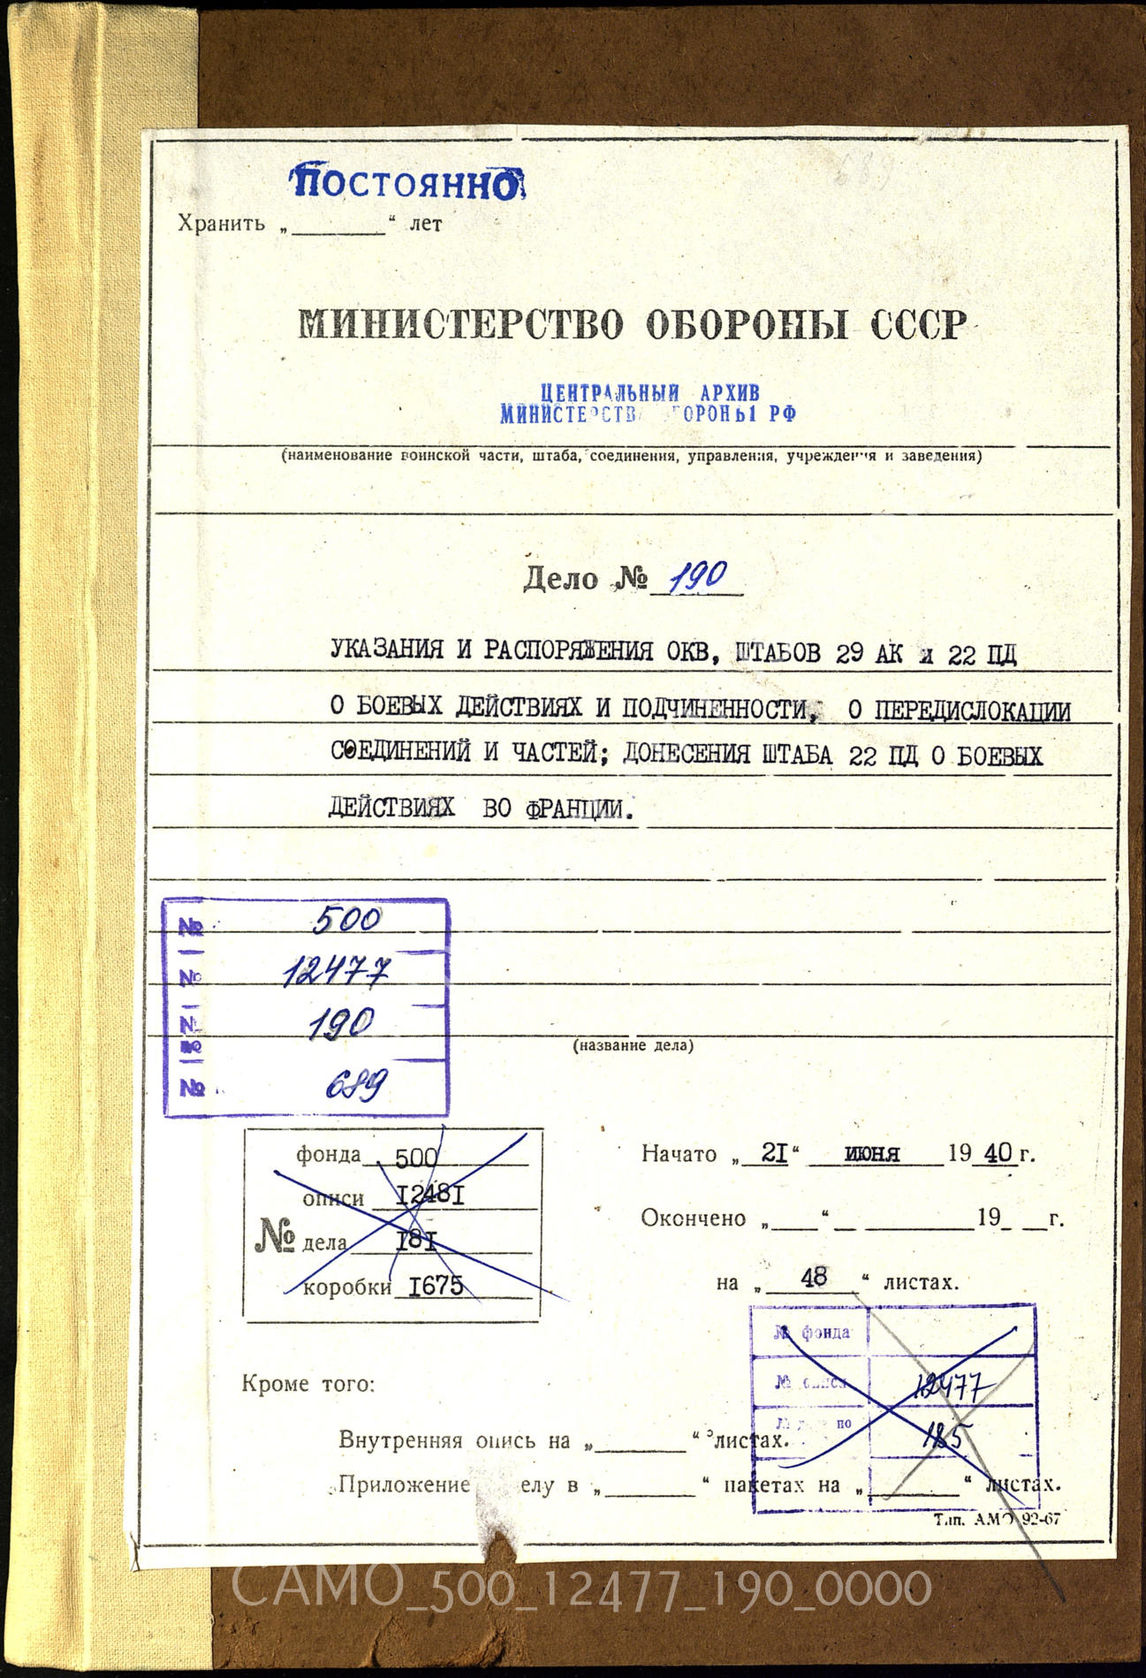 ПОСТОЯННО
Хранить „ “ лет
МИНИСТЕРСТВО ОБОРОНЫ СССР
ЦЕНТРАЛЬНЫЙ АРХИВ
МИНИСТЕРСТВ ОРОНЫ РФ
(наименование воинской части, штаба, соединения, управления, учреждения и заведения)
Дело № 190
УКАЗАНИЯ И РАСПОРЯЖЕНИЯ ОКВ, ШТАБОВ 29 АК И 22 ПД
О БОЕВЫХ ДЕЙСТВИЯХ И ПОДЧИНЕННОСТИ, О ПЕРЕДИСЛОКАЦИИ
СОЕДИНЕНИЙ И ЧАСТЕЙ; ДОНЕСЕНИЯ ШТАБА 22 ПД О БОЕВЫХ
ДЕЙСТВИЯХ ВО ФРАНЦИИ.
№ 500
№ 12477
№ 190
№ 689
(название дела)
фонда 500
описи I248I
№ дела I8I
коробки I675
Начато „ 2I “ июня 19 40 г.
Окончено „ “ 19 г.
на „ 48 “ листах.
№ фонда
№ описи 12477
№ по 185
Кроме того:
Внутренняя опись на „ “ листах.
Приложение елу в „ “ пакетах на „ “ листах.
Тип. АМО 92-67
CAMO_500_12477_190_0000